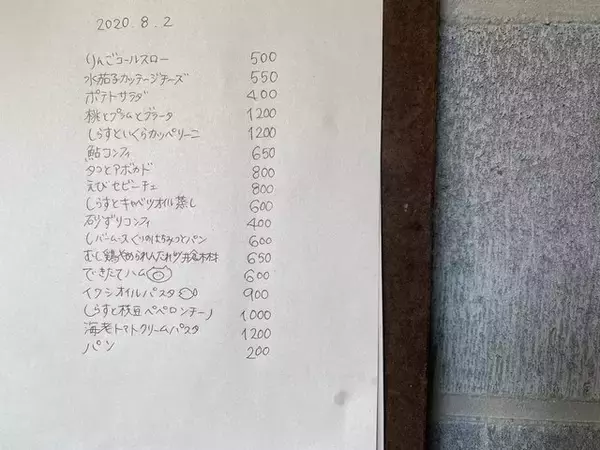 2020.8.2
りんごコールスロー 500
水茄子カッテージチーズ 550
ポテトサラダ 400
桃とプラムとブラータ 1200
しらすといくらカッペリーニ 1200
鮎コンフィ 650
タコとアボカド 800
えびセビーチェ 800
しらすとキャベツオイル蒸し 600
砂ずりコンフィ 400
レバームース くりのはちみつとパン 600
むし鶏 やめられんたれ 650
できたてハム 600
イワシオイルパスタ 900
しらすと枝豆ペペロンチーノ 1000
海老トマトクリームパスタ 1200
パン 200